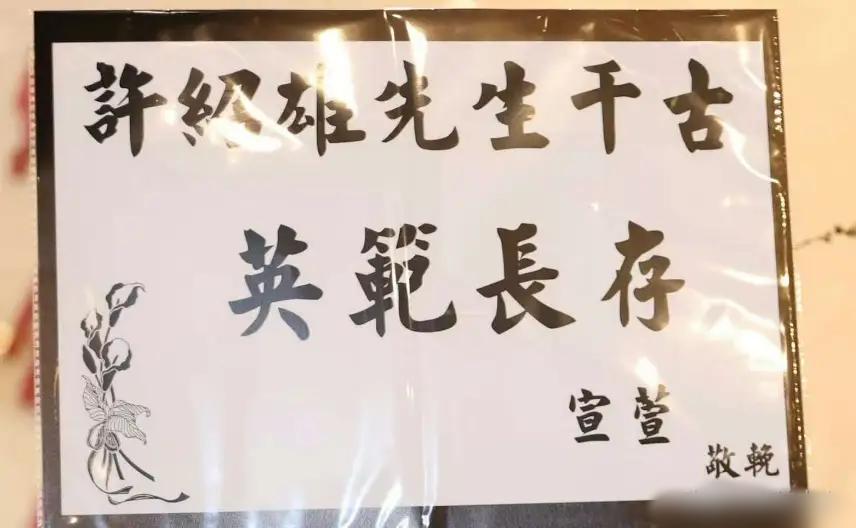 許紹雄先生千古
英範長存
宣萱
敬輓